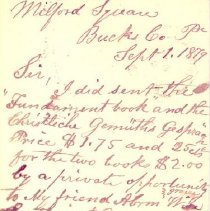 Milford Square
Bucks Co Pa
Sept 1. 1879
Sir,
I did sent the
Fundament book and the
Christliche Gemüths Gespräch
Price $1.75 and 25cts
for the two book $2.00
by a private opportunity
to My friend Abrm